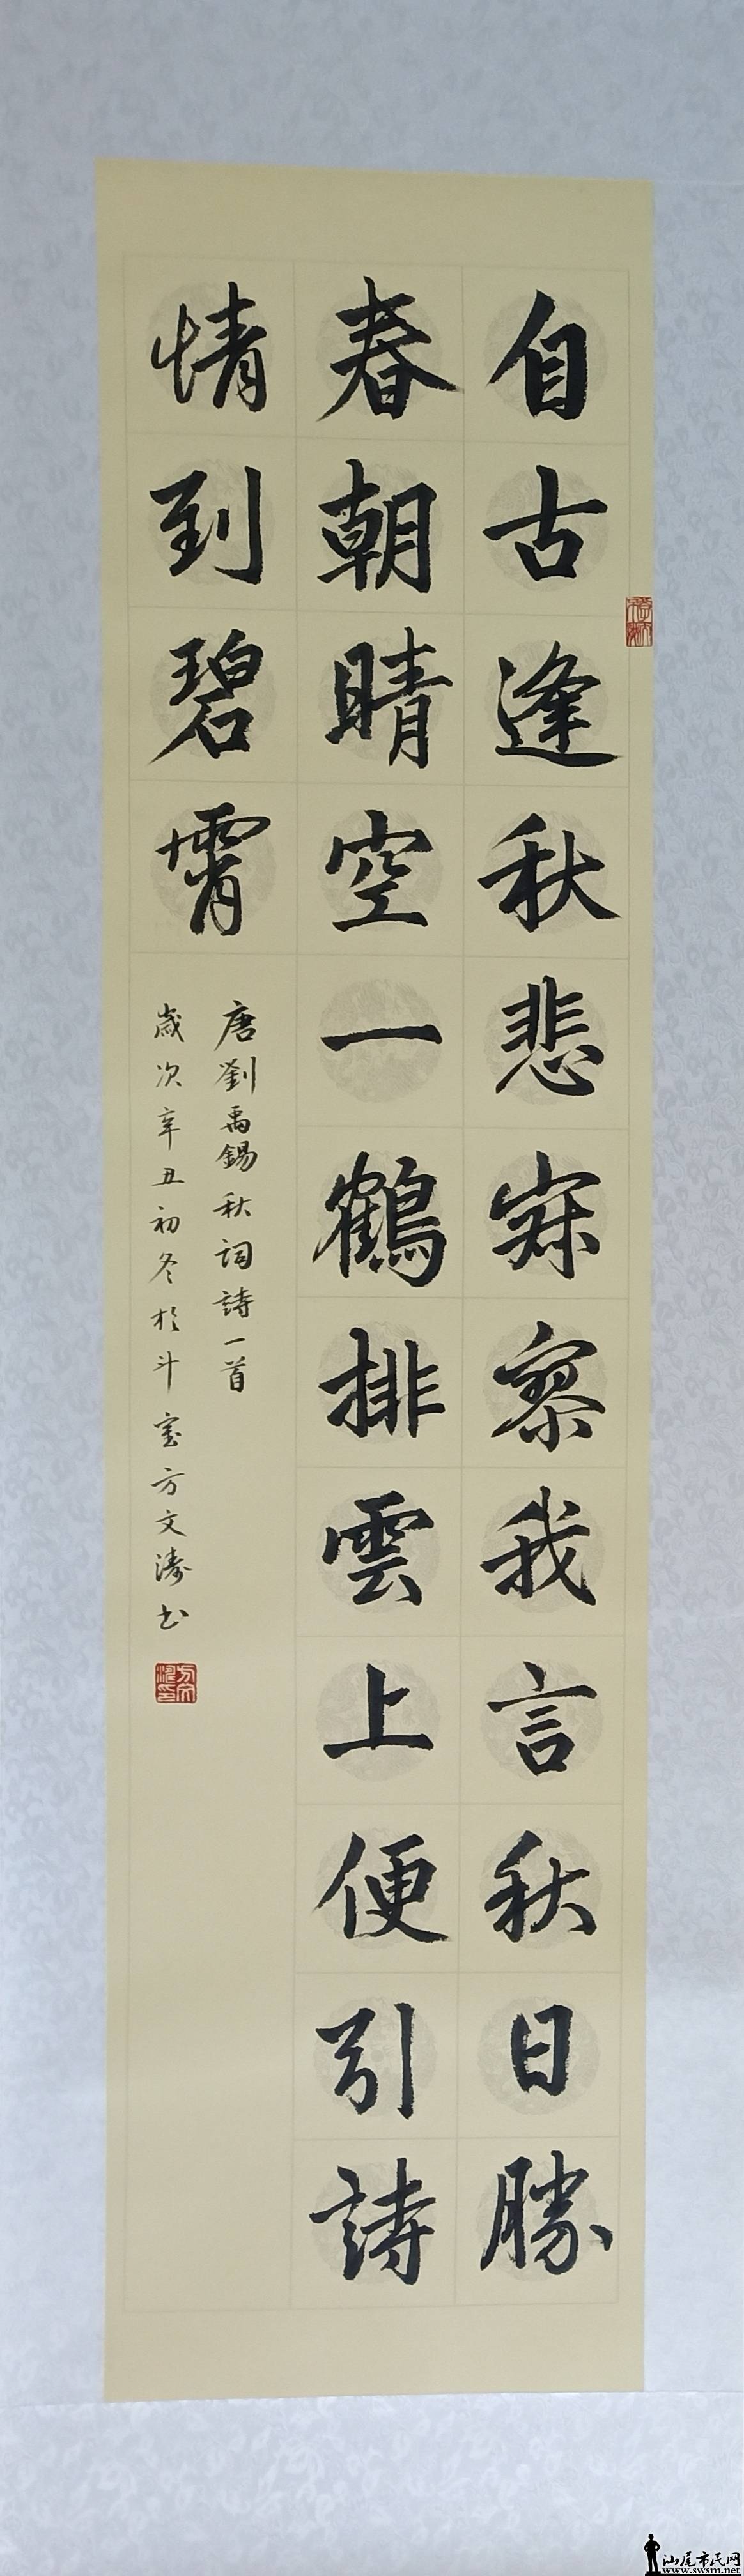 自古逢秋悲寂寥我言秋日勝
春朝晴空一鶴排雲上便引詩
情到碧霄
唐劉禹錫秋詞詩一首
歲次辛丑初冬於斗室方文濤书
方文濤印
汕尾市民网
www.swsm.net